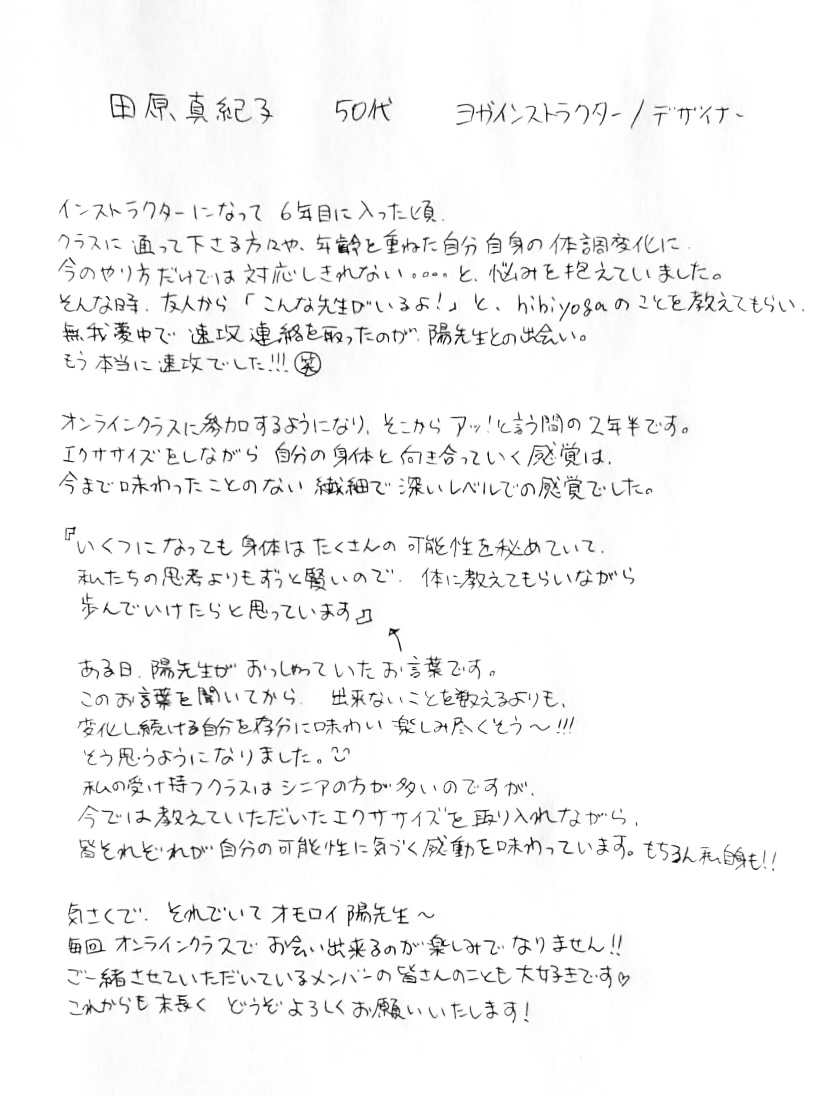 田原真紀子 50代 ヨガインストラクター/デザイナー
インストラクターになって 6年目に入った頃、
クラスに通って下さる方々や、年齢を重ねた自分自身の体調変化に、
今のやり方だけでは対応しきれない・・・・と、悩みを抱えていました。
そんな時、友人から「こんな先生がいるよ!」と、hibiyogaのことを教えてもらい、
無我夢中で 速攻連絡を取ったのが、陽先生との出会い。
もう本当に速攻でした!!! 笑
オンラインクラスに参加するようになり、そこから アッ!と言う間の2年半です。
エクササイズをしながら 自分の身体と向き合っていく感覚は、
今まで味わったことのない 繊細で深いレベルでの感覚でした。
『いくつになっても 身体は たくさんの 可能性を秘めていて、
私たちの思考よりもずっと賢いので、体に教えてもらいながら
歩んでいけたらと思っています』
ある日、陽先生が おっしゃっていたお言葉です。
このお言葉を聞いてから、出来ないことを数えるよりも、
変化し続ける自分を存分に味わい 楽しみ尽くそう〜!!!
そう思うようになりました。
私の受け持つクラスは シニアの方が多いのですが、
今では教えていただいたエクササイズを取り入れながら、
皆それぞれが自分の可能性に気づく感動を味わっています。もちろん私自身も!!
気さくで、それでいて オモロイ陽先生〜
毎回 オンラインクラスで お会い出来るのが楽しみでなりません!!
ご一緒させていただいているメンバーの皆さんのことも大好きです♡
これからも末長く どうぞよろしくお願いいたします!